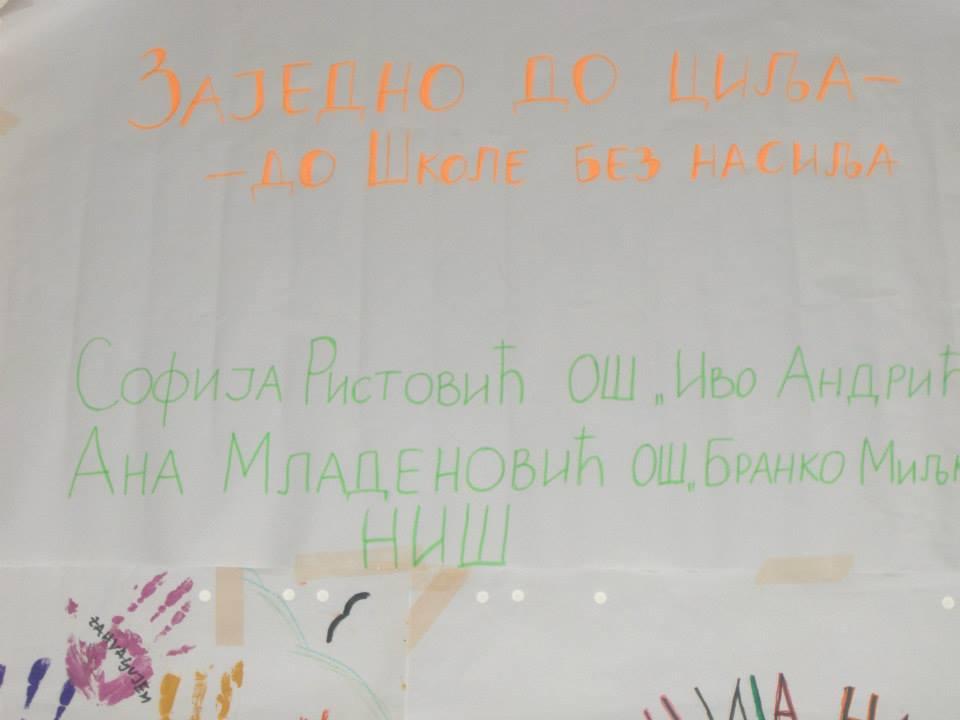 ЗАЈЕДНО ДО ЦИЉА –
– ДО ШКОЛЕ БЕЗ НАСИЉА
СОФИЈА РИСТОВИЋ ОШ „ИВО АНДРИЋ
АНА МЛАДЕНОВИЋ ОШ „БРАНКО МИЉК
НИШ
ZAHVALJUJEM